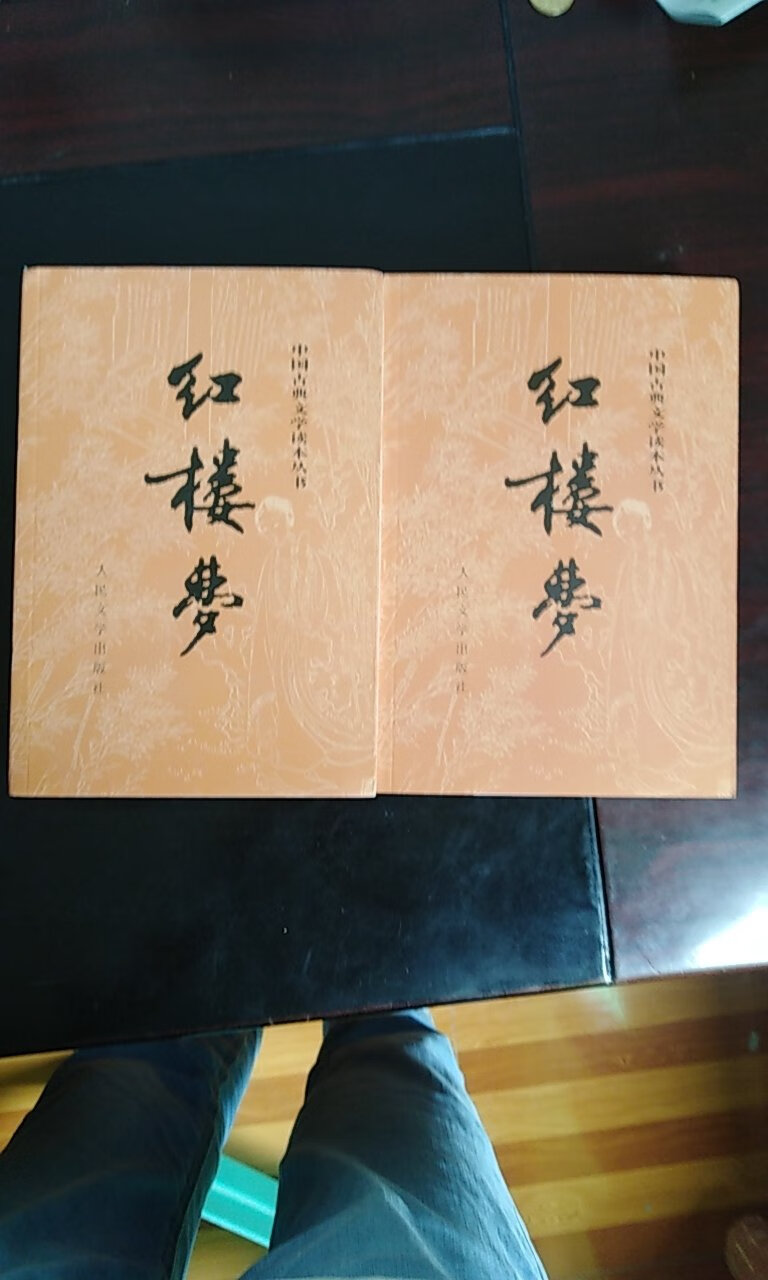 中国古典文学读本丛书
红楼梦
人民文学出版社
中国古典文学读本丛书
红楼梦
人民文学出版社